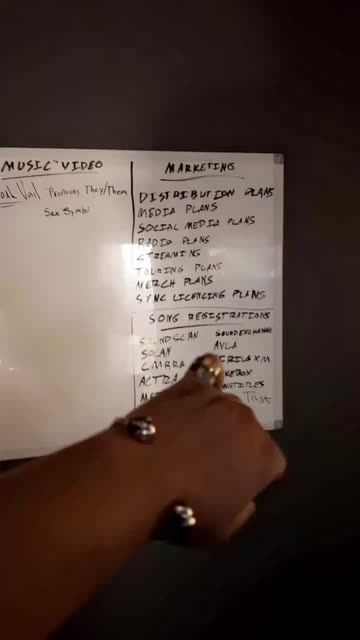 MUSIC VIDEO
Vail "Pronouns They/Them
Sex Symbol
MARKETING
DISTRIBUTION PLANS
MEDIA PLANS
SOCIAL MEDIA PLANS
RADIO PLANS
STREAMING
TOURING PLANS
MERCH PLANS
SYNC LICENCING PLANS
SONG REGISTRATIONS
SOUNDSCAN SOUNDEXCHANGE
SOCAN AVLA
CMRRA SIRIUS XM
ACTRA